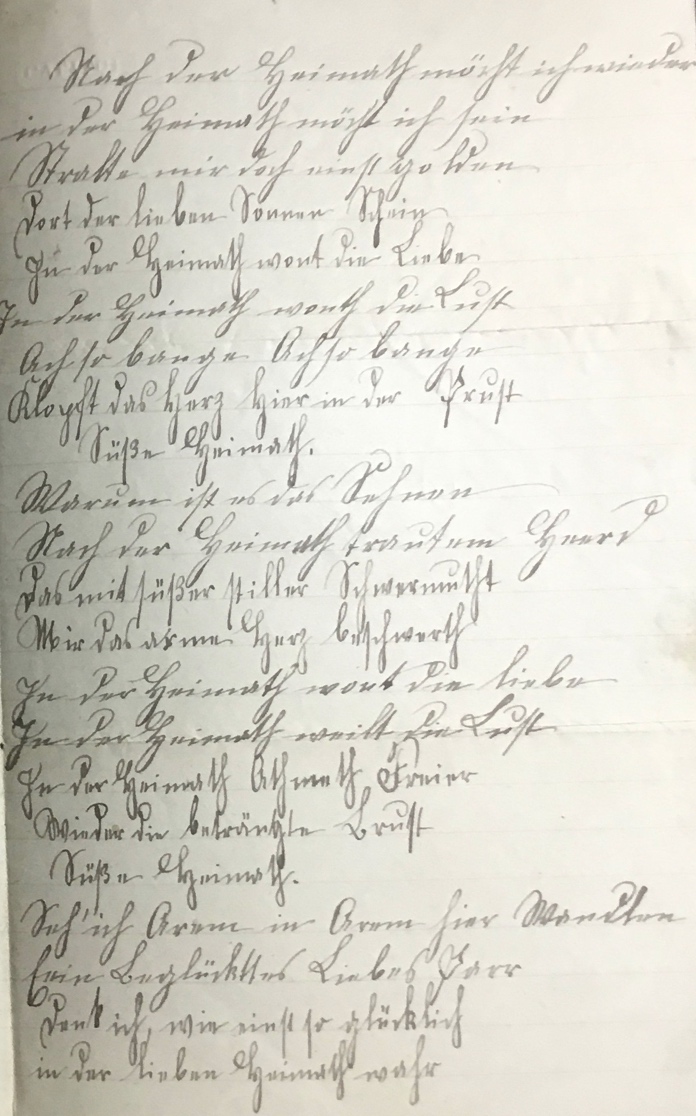 Nach der Heimath möcht ich wieder
in der Heimath möcht ich sein
Stralte mir doch einst golden
Dort der lieben Sonnen Schein
In der Heimath wont die Liebe
In der Heimath wonth die Lust
Ach so bange Ach so bange
Klopft das Herz Hier in der Prust
Süße Heimath.
Warum ist es das Sehnen
Nach der Heimath trautem Heerd
Das mit süßer stiller Schwermutht
Mir das arme Herz beschwerth
In der Heimath wont die liebe
In der Heimath weilt die Lust
In der Heimath Athmeth Freier
Wieder die beträngte Brust
Süße Heimath.
Seh' ich Arem in Arem hier Wandlen
Ein Beglücktes Liebes Parr
Denk ich, wie einst so glücklich
in der lieben Heimath wahr